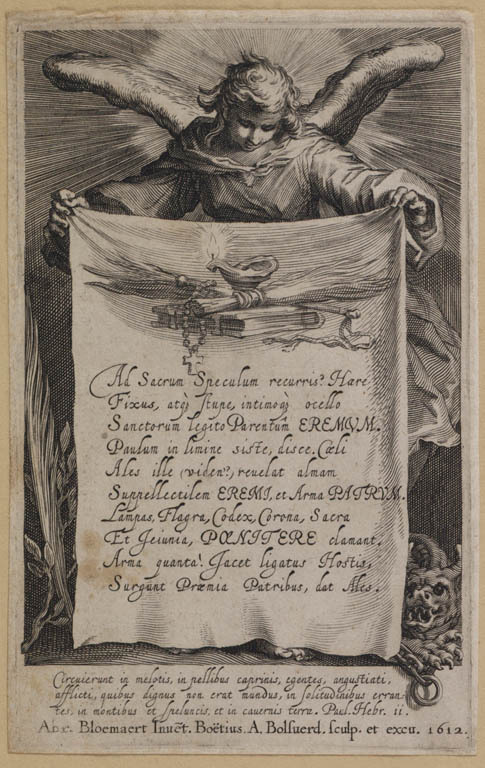 Ad Sacrum Speculum recurris? Hære
Fixus, atq; stupe, intimoq; ocello
Sanctorum legito Parentum̂ EREMVM.
Paulum in limine siste, disce. Cœli
Ales ille (viden?) reuelat almam
Suppellectilem EREMI, et Arma PATRVM.
Lampas, Flagra, Codex, Corona, Sacra
Et Jeiunia, PŒNITERE clamant.
Arma quanta! Jacet ligatus Hostis,
Surgunt Præmia Patribus, dat Ales.
Circuierunt in melotis, in pellibus caprinis, egentes, angustiati,
afflicti, quibus dignus non erat mundus, in solitudinibus erran-
tes, in montibus et speluncis, et in cauernis terræ. Paul. Hebr. ii.
Abr. Bloemaert Inuēt. Boëtius. A. Bolsuerd. sculp. et excu. 1612.